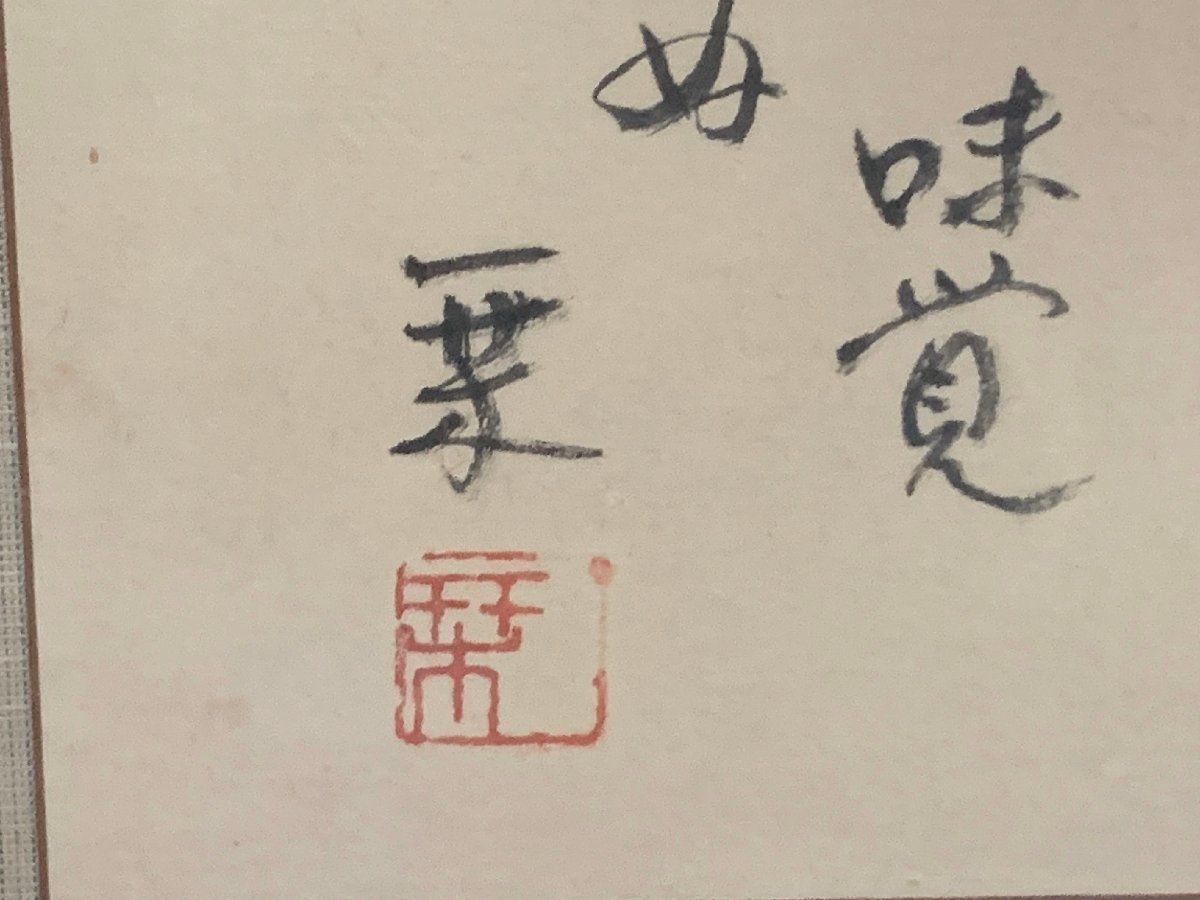 味覚
ぬ
一栞